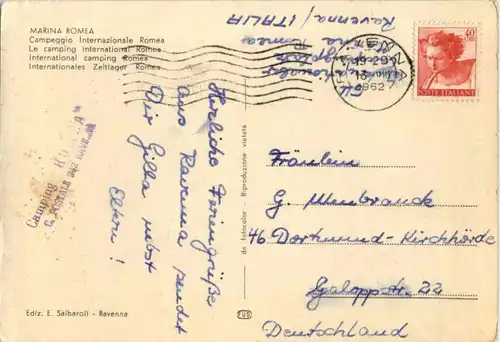 MARINA ROMEA
Campeggio Internazionale Romea
Le camping international Romea
International camping Romea
Internationales Zeltlager Romea
Ravenna / ITALIA
Marina Romea
40
POSTE ITALIANE
1962
Camping
Herzliche Feriengrüße
aus Ravenna sendet
Dir Gilla nebst
Eltern!
Ediz. E. Salbaroli - Ravenna
da fotocolor - Riproduzione vietata
Fräulein
G. Ullenbrauck
46 Dortmund-Kirchhörde
Galoppstr. 22
Deutschland